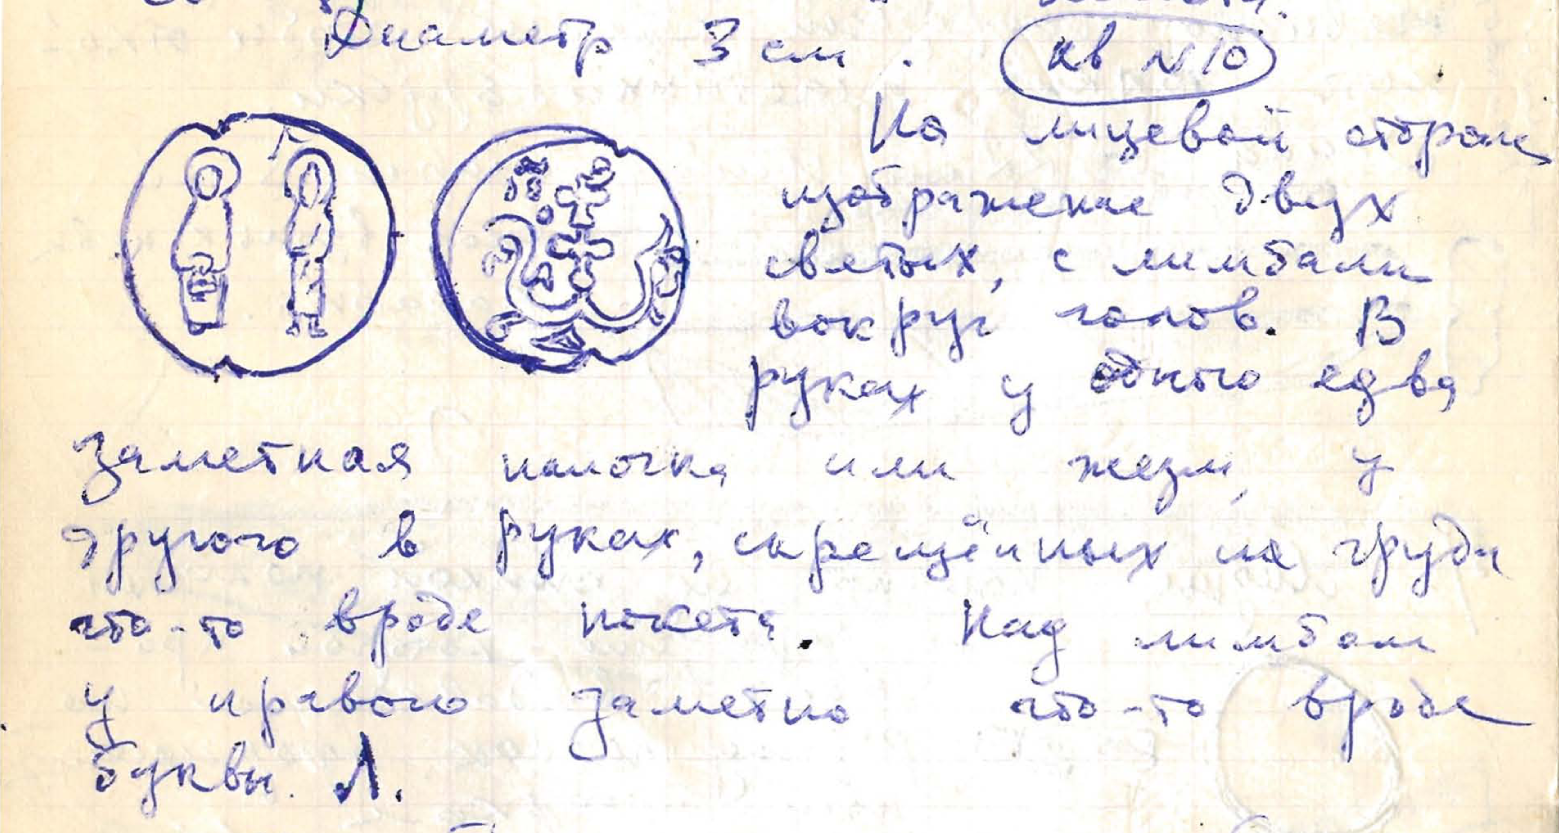 Диаметр 3 см. кв N 10
На лицевой стороне
изображение двух
святых, с лимбами
вокруг голов. В
руках у одного едва
заметная палочка или жезл, у
другого в руках, скрещённых на груди
что-то вроде
Над лимбом
у правого заметно что-то вроде
буквы Л.